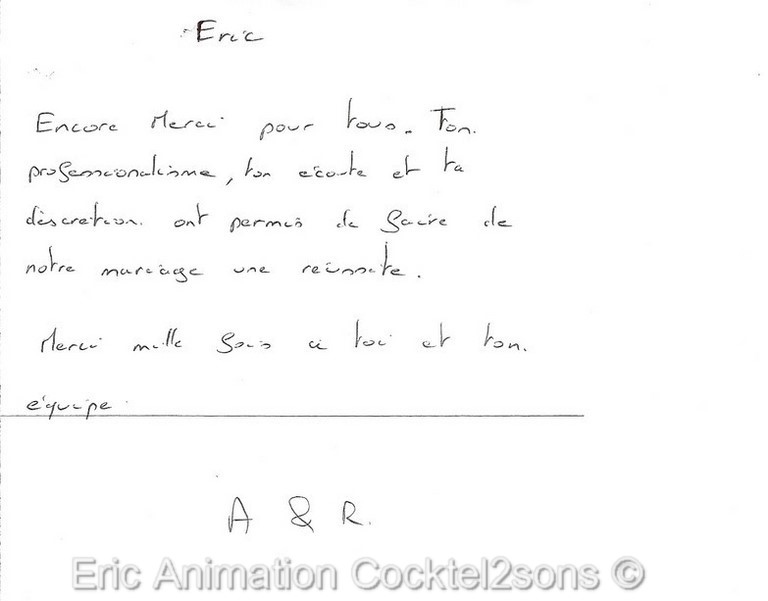 Eric
Encore Merci pour tous. Ton
professionalisme, ton écoute et ta
discretion ont permis de faire de
notre mariage une réussite.
Merci mille fois à toi et ton
équipe
A & R.
Eric Animation Cocktel2sons ©